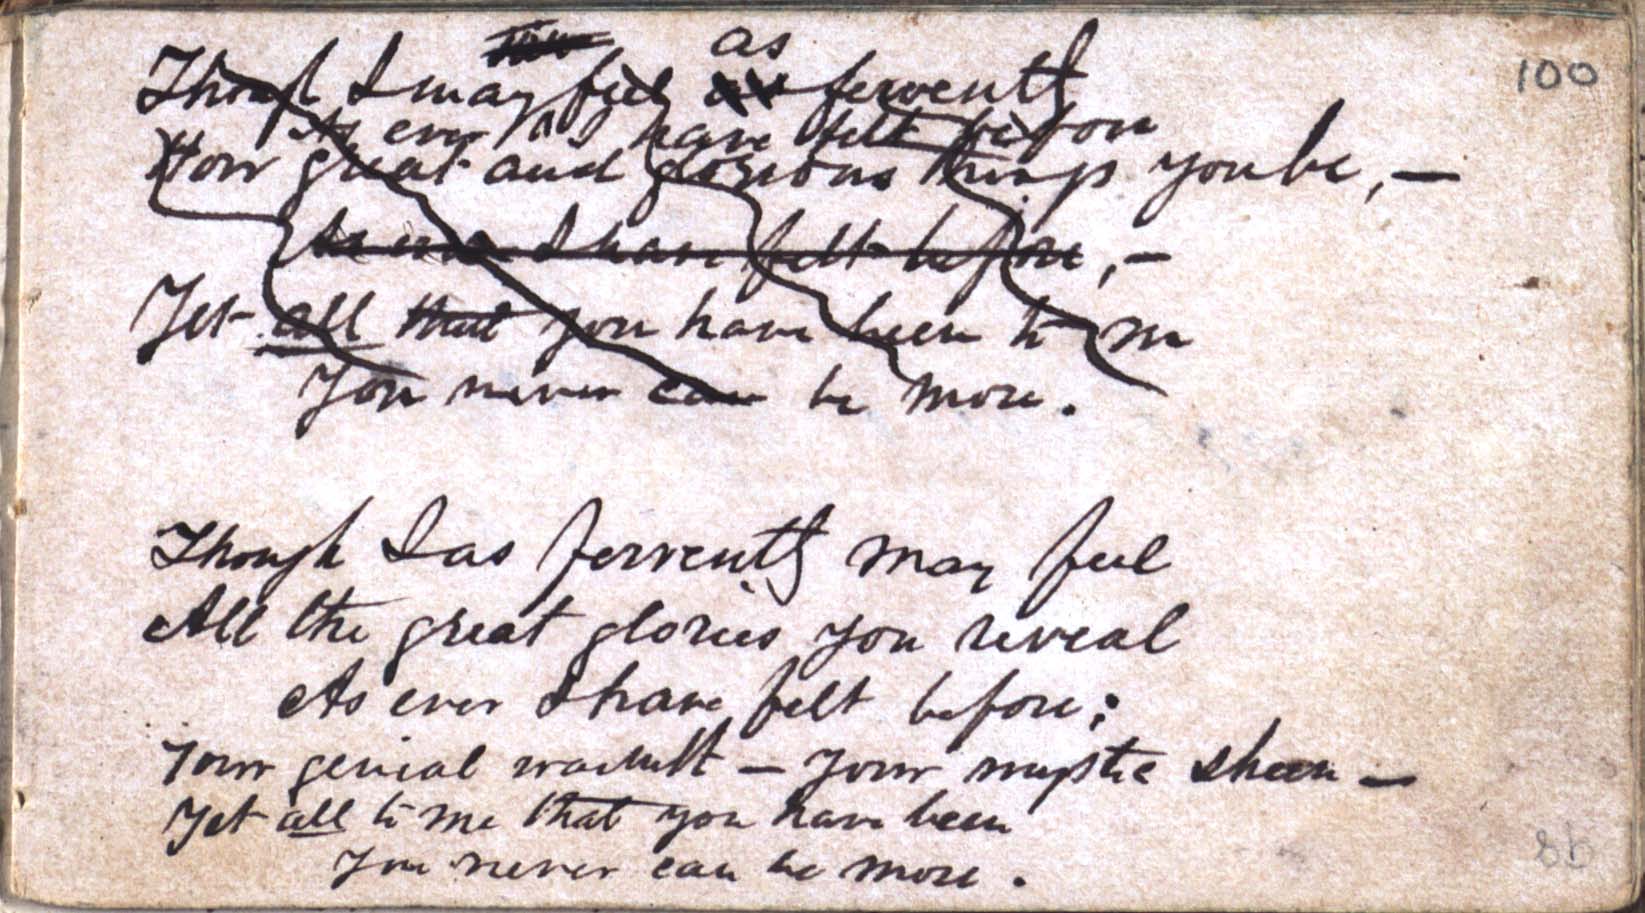 as
100
Though I may feel as fervently
As ever I have felt before
How great and glorious things you be, —
As ever I have felt before, —
Yet all that you have been to me
You never can be more.
Though I as fervently may feel
All the great glories you reveal
As ever I have felt before;
Your genial warmth — your mystic sheen —
Yet all to me that you have been
You never can be more.